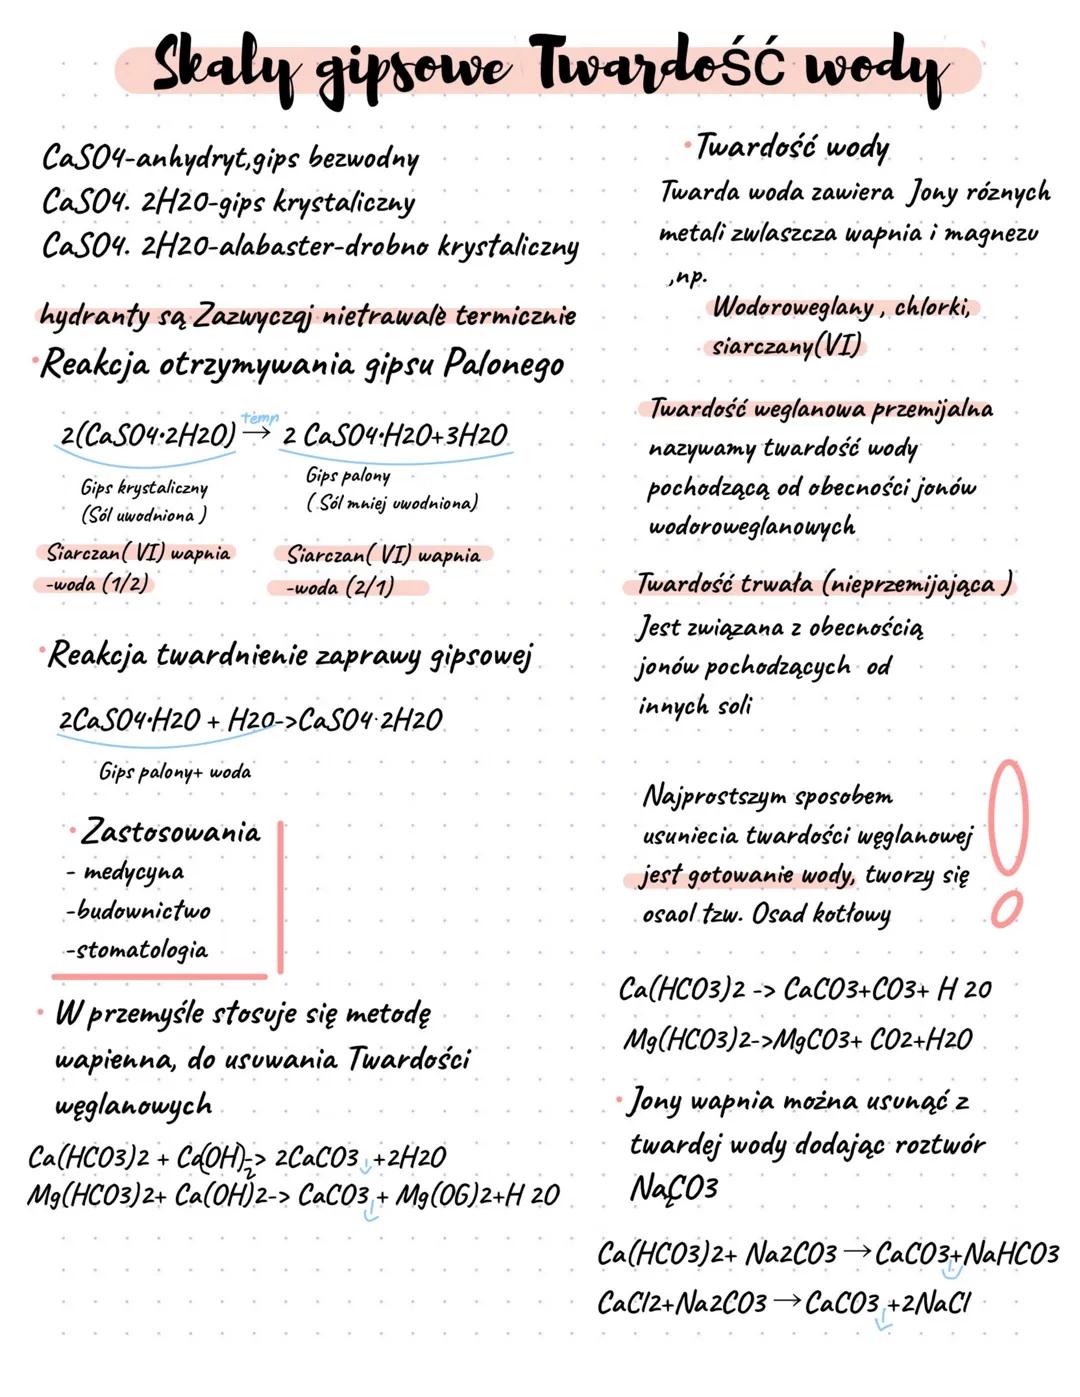 Skały gipsowe Twardość wody
CaSO4-anhydryt,gips bezwodny
CaSO4. 2H2O-gips krystaliczny
CaSO4. 2H2O-alabaster-drobno krystaliczny
hydranty są Zazwyczaj nietrawałe termicznie
Reakcja otrzymywania gipsu Palonego
temp
2(CaSO4•2H2O) → 2 CaSO4•H2O+3H2O
Gips krystaliczny
(Sól uwodniona )
Gips palony
( Sól mniej uwodniona)
Siarczan( VI) wapnia
-woda (1/2)
Siarczan( VI) wapnia
-woda (2/1)
Reakcja twardnienie zaprawy gipsowej
2CaSO4•H2O + H2O->CaSO4·2H2O
Gips palony+ woda
Zastosowania
- medycyna
-budownictwo
-stomatologia
W przemyśle stosuje się metodę
wapienna, do usuwania Twardości
węglanowych
Ca(HCO3)2 + Ca(OH)2-> 2CaCO3↓+2H2O
Mg(HCO3)2+ Ca(OH)2-> CaCO3↓+ Mg(OG)2+H 2O
Twardość wody
Twarda woda zawiera Jony róznych
metali zwlaszcza wapnia i magnezu
,np.
Wodoroweglany , chlorki,
siarczany(VI)
Twardość weglanowa przemijalna
nazywamy twardość wody
pochodzącą od obecności jonów
wodoroweglanowych
Twardość trwała (nieprzemijająca )
Jest związana z obecnością
jonów pochodzących od
innych soli
Najprostszym sposobem
usuniecia twardości węglanowej
jest gotowanie wody, tworzy się
osaol tzw. Osad kotłowy
Ca(HCO3)2 -> CaCO3+CO3+ H 2O
Mg(HCO3)2->MgCO3+ CO2+H2O
Jony wapnia można usunąć z
twardej wody dodając roztwór
Na2CO3
Ca(HCO3)2+ Na2CO3 →CaCO3↓+NaHCO3
CaCl2+Na2CO3 →CaCO3↓+2NaCl